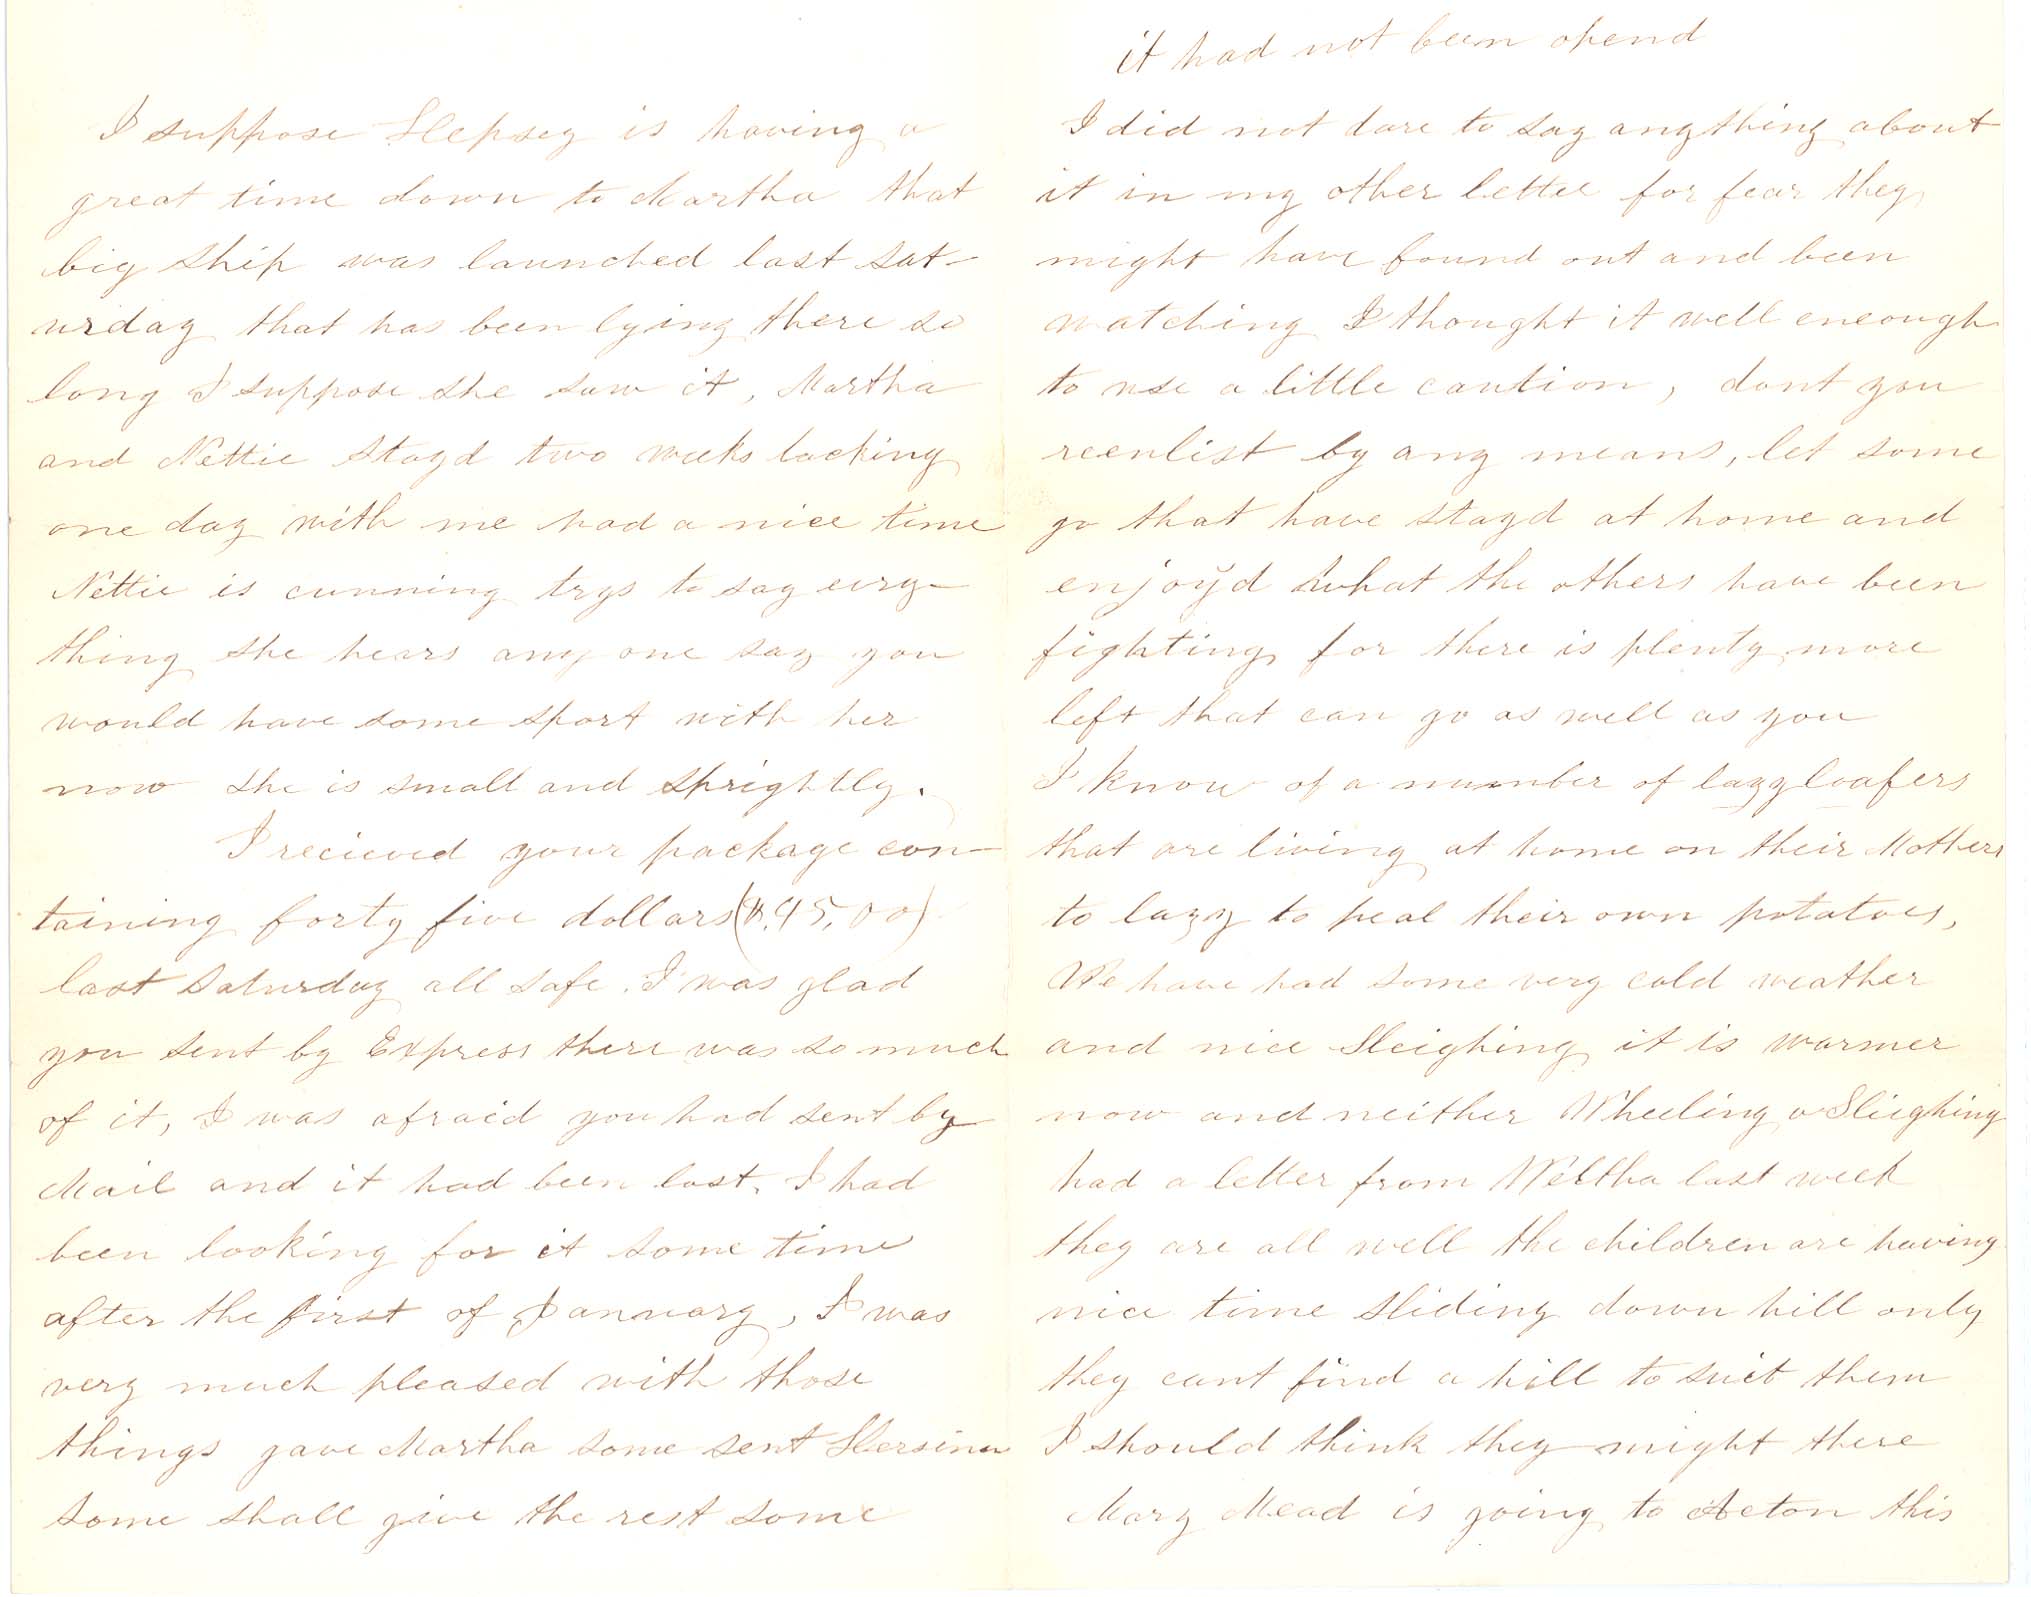 I suppose Hepsey is having a
great time down to Martha that
big ship was launched last sat-
urday that has been lying there so
long I suppose she saw it, Martha
and Nettie stayd two weeks lacking
one day with me had a nice time
Nettie is cunning trys to say evry-
thing she hears any one say you
would have some sport with her
now she is small and sprightly.
I recieved your package con-
taining forty five dollars ($.45,00)
last Saturday all safe. I was glad
you sent by Express there was so much
of it, I was afraid you had sent by
Mail and it had been lost. I had
been looking for it some time
after the first of January, I was
very much pleased with those
things gave Martha some sent Hersina
some shall give the rest some
it had not been opend
I did not dare to say anything about
it in my other letter for fear they
might have found out and been
watching I thought it well eneough
to use a little caution, dont you
reenlist by any means, let some
go that have stayd at home and
enjoyd what the others have been
fighting for there is plenty more
left that can go as well as you
I know of a number of lazy loafers
that are living at home on their Mothers
to lazy to peal their own potatoes,
We have had some very cold weather
and nice Sleighing it is warmer
now and neither Wheeling or Sleighing
had a letter from Weltha last week
they are all well the children are having
nice time sliding down hill only
they cant find a hill to suit them
I should think they might there
Mary Mead is going to Acton this